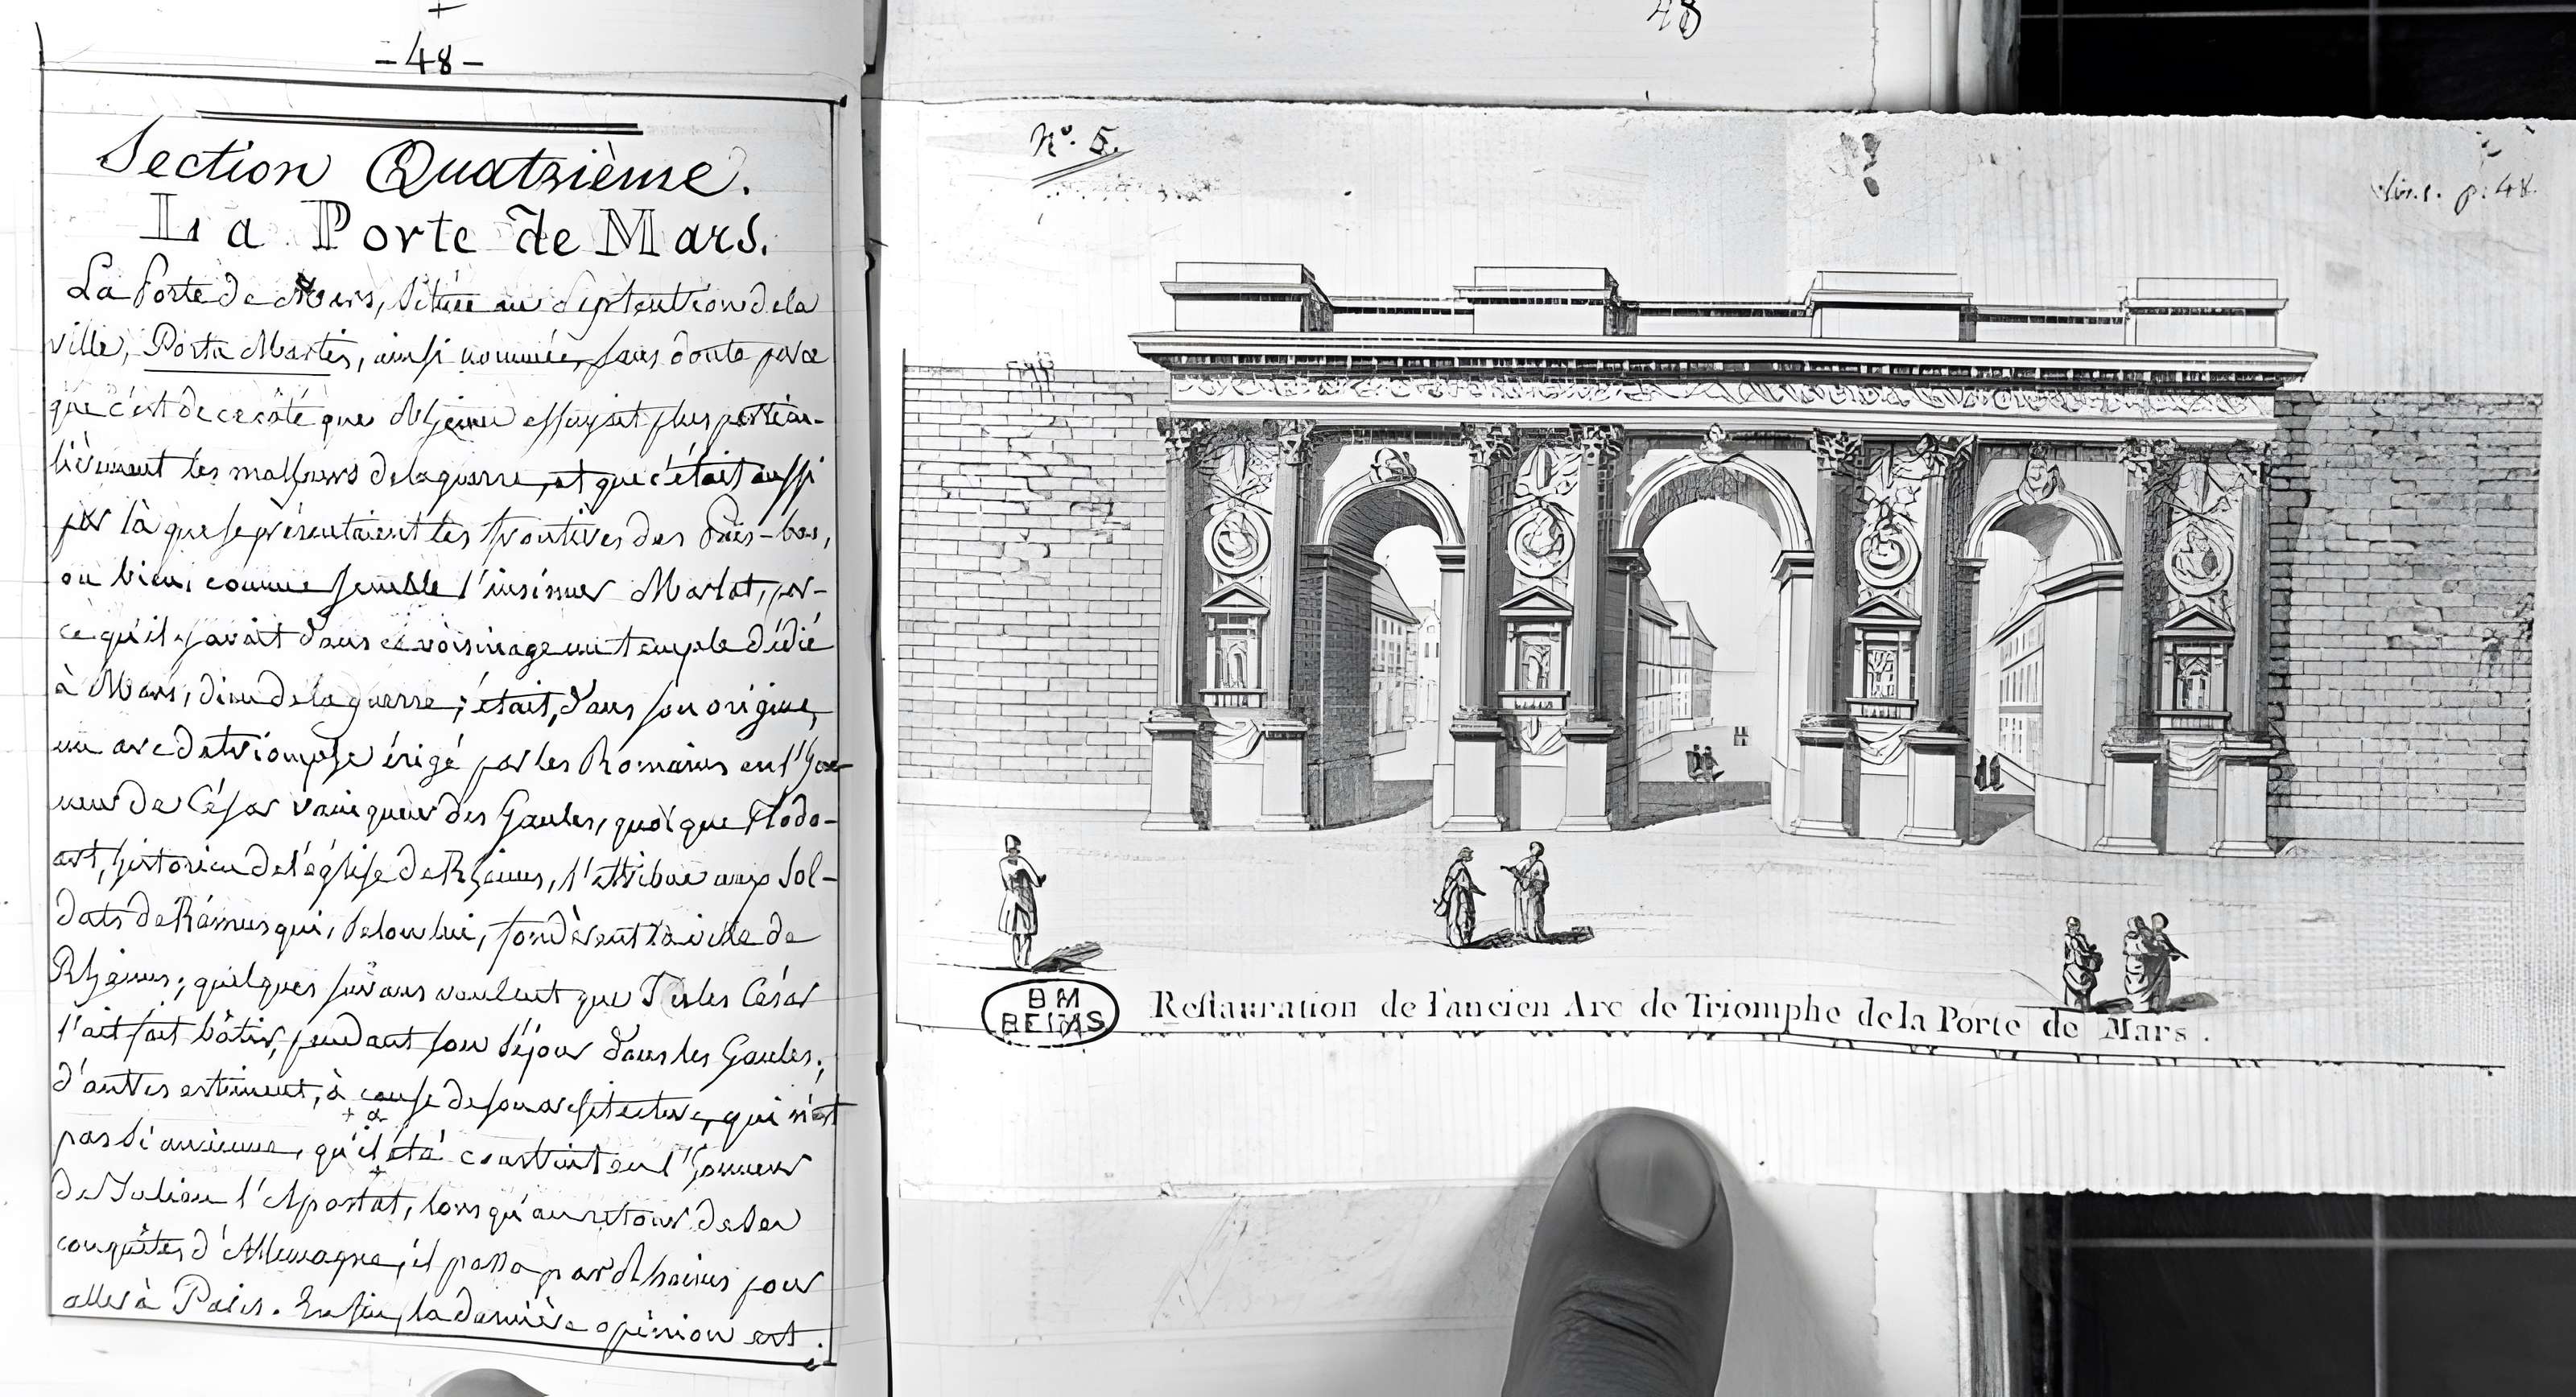 -48-
Section Quatrième.
La Porte de Mars.
La Porte de Mars, située au Septentrion de la
ville, Porta Martis, ainsi nommée, sans doute parce
que c'est de ce côté que Rheims essuyait plus particu-
lièrement les malheurs de la guerre, et que c'était aussi
par là que se présentaient les frontières des Païs-bas,
ou bien, comme semble l'insinuer Marlot, par-
ce qu'il y avait dans ce voisinage un temple dédié
à Mars, dieu de la guerre; était, dans son origine,
un arc de triomphe érigé par les Romains en l'hon-
neur de César vainqueur des Gaules, quoique Flodo-
art, historien de l'église de Rheims, l'attribue aux Sol-
dats de Rémus qui, selon lui, fondèrent la ville de
Rheims; quelques savans veulent que Jules César
l'ait fait bâtir, pendant son séjour dans les Gaules;
d'autres estiment, à cause de son architecture, qui n'est
pas si ancienne, qu'il a été construit en l'honneur
de Julien l'Apostat, lorsqu'au retour de ses
conquêtes d'Allemagne, il passa par Rheims pour
aller à Paris. Enfin, la dernière opinion est
48
N.° 5.
p. 48.
BM
REIMS
Restauration de l'ancien Arc de Triomphe de la Porte de Mars.